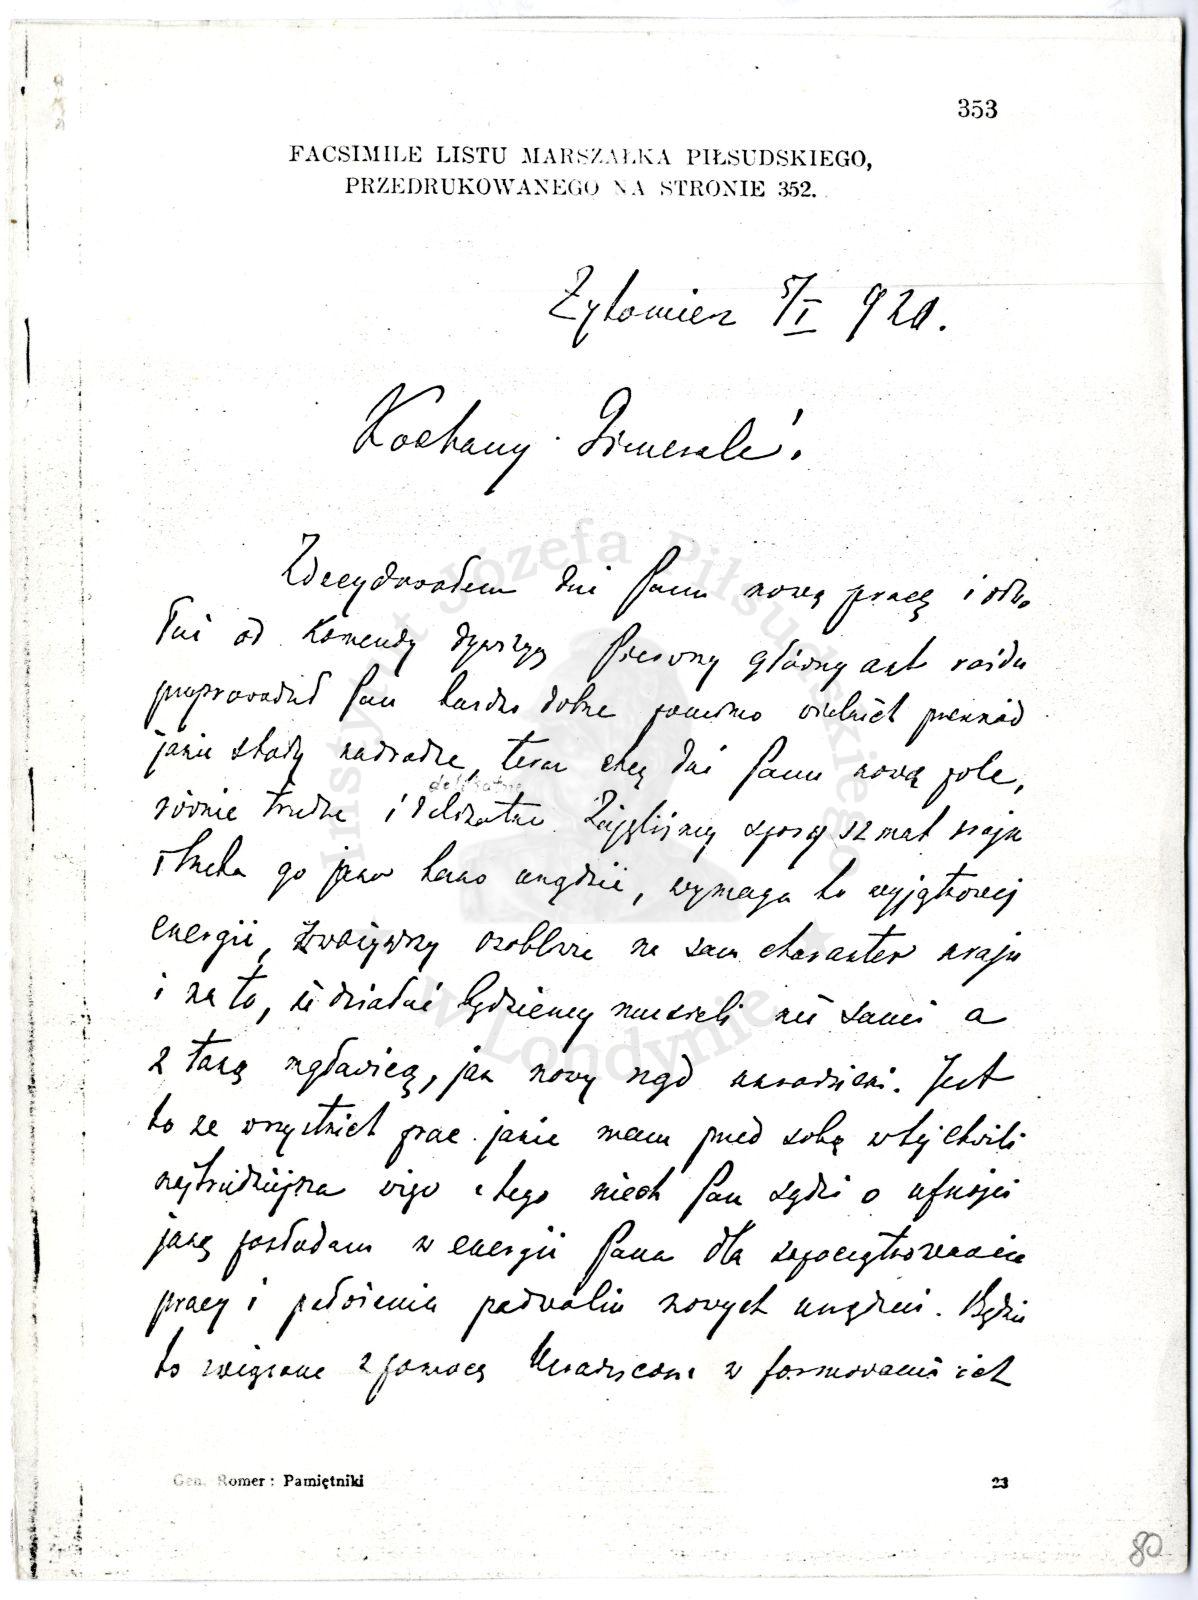 353
FACSIMILE LISTU MARSZAŁKA PIŁSUDSKIEGO,
PRZEDRUKOWANEGO NA STRONIE 352.
Żytomierz 5/I 920.
Kochany Generale!
Zdecydowałem dać Panu nową pracę i odwo
łać od Komendy dywizyi Pierwszy główny akt rajdu
przeprowadził Pan bardzo dobrze pomimo wielkich przeszkód
jakie stały na drodze, teraz chcę dać Panu nowe pole,
delikatne
równie trudne i delikatne. Zajęliśmy spory szmat kraju
i trzeba go jako tako urządzić, wymaga to wyjątkowej
energii, zważywszy osobliwie na sam charakter kraju
i na to, że działać będziemy musieli nie sami a
z taką mgławicą, jak nowy rząd ukraiński. Jest
to ze wszystkich prac jakie mam przed sobą w tej chwili
najtrudniejsza więc z tego niech Pan sądzi o ufności
jaką posiadam w energii Pana dla zapoczątkowania
pracy i położenia podwalin nowych urządzeń. Będzie
to związane z pomocą Ukraińcom w formowaniu ich
Gen. Romer: Pamiętniki
23
80
Instytut Józefa Piłsudskiego
w Londynie